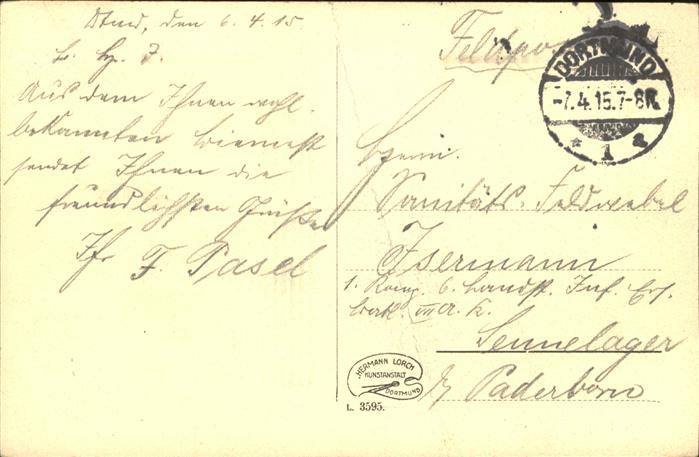 Dtmd, den 6.4.15
L. Hr. J.
Aus dem Ihnen wohl-
bekannten
sendet Ihnen die
freundlichsten Grüße
Ihr F. Pasel
Feldpost
DORTMUND
-7.4.15.7-8N.
* 1 a
Herrn
Sanitäts-Feldwebel
Isermann
1. Komp. 6. Landst. Inf. Ers.
Batl. VII A. K.
Sennelager
b/ Paderborn
HERMANN LORCH
KUNSTANSTALT
DORTMUND
L. 3595.